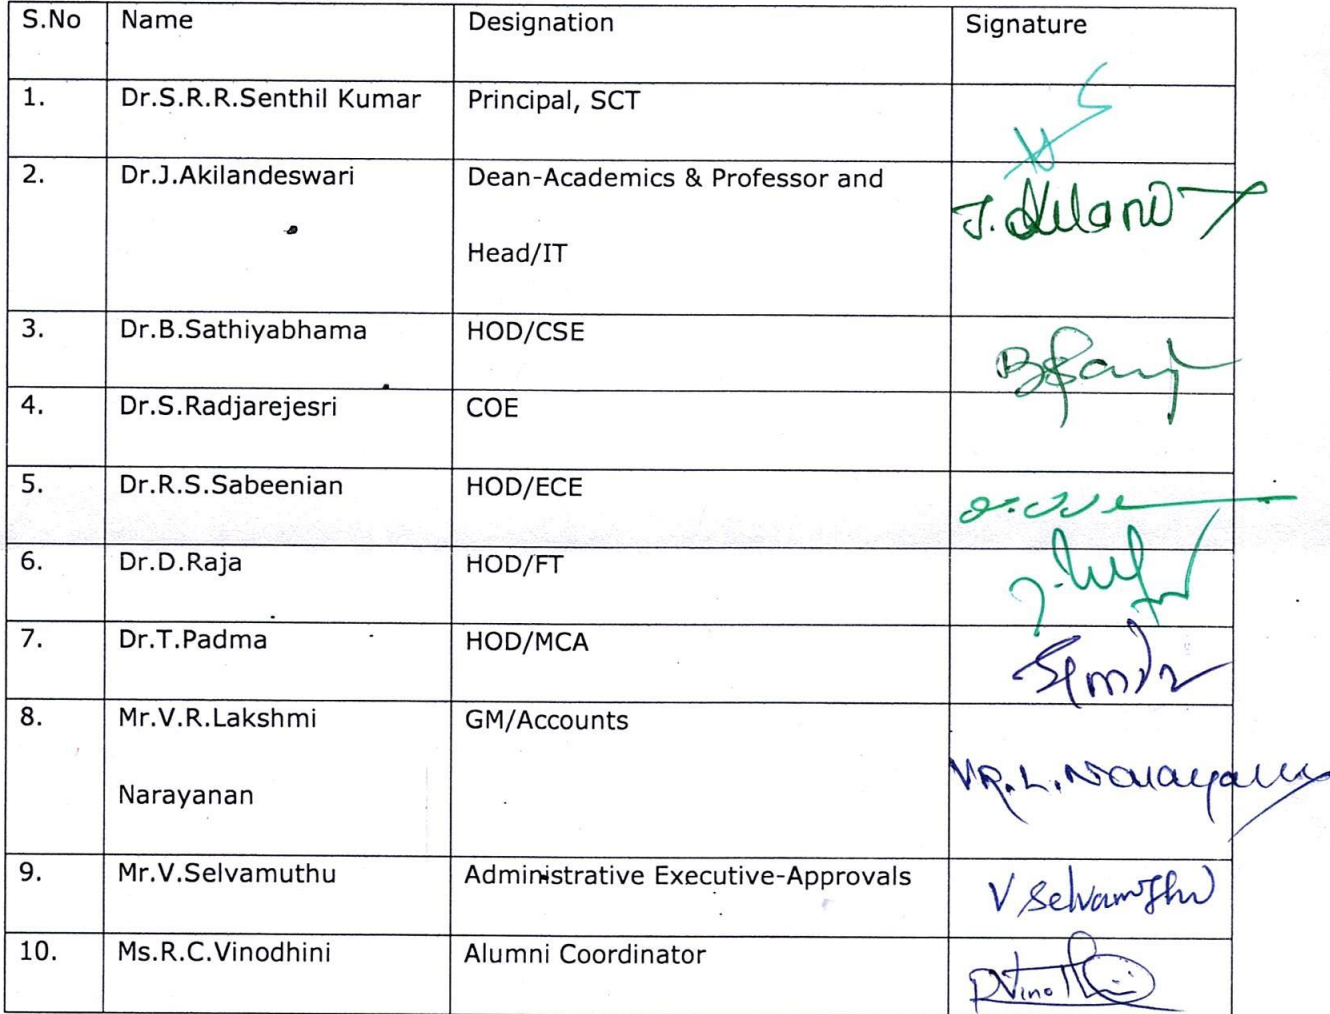 S.No Name Designation Signature
1. Dr.S.R.R.Senthil Kumar Principal, SCT
2. Dr.J.Akilandeswari Dean-Academics & Professor and
Head/IT
3. Dr.B.Sathiyabhama HOD/CSE
4. Dr.S.Radjarejesri COE
5. Dr.R.S.Sabeenian HOD/ECE
6. Dr.D.Raja HOD/FT
7. Dr.T.Padma HOD/MCA
8. Mr.V.R.Lakshmi GM/Accounts
Narayanan VR.L.Narayanan
9. Mr.V.Selvamuthu Administrative Executive-Approvals V Selvamuthu
10. Ms.R.C.Vinodhini Alumni Coordinator